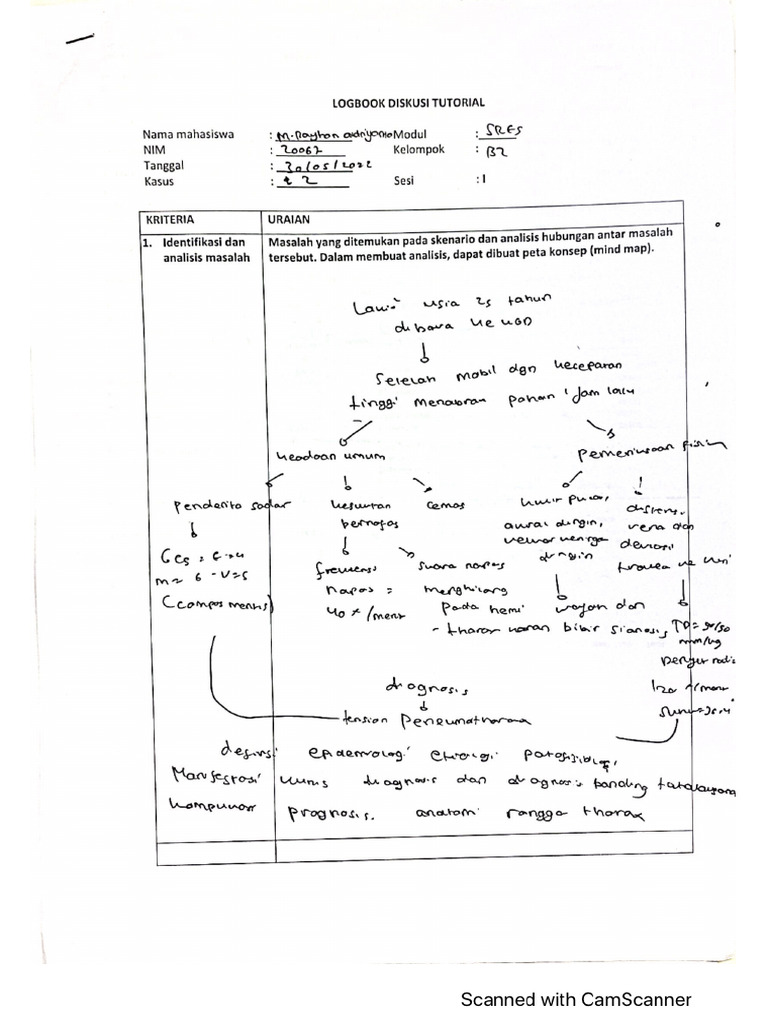 LOGBOOK DISKUSI TUTORIAL
Nama mahasiswa : M. Rayhan Modul : SRES
NIM : 20067 Kelompok : B2
Tanggal : 30/05/2022
Kasus : 2 Sesi : 1
KRITERIA URAIAN
1. Identifikasi dan analisis masalah
Masalah yang ditemukan pada skenario dan analisis hubungan antar masalah
tersebut. Dalam membuat analisis, dapat dibuat peta konsep (mind map).
usia 25 tahun
dibawa ke UGD
Setelah mobil dgn kecepatan
tinggi menabrak 1 jam lalu
keadaan umum pemeriksaan fisik
Penderita sadar kesulitan bernafas cemas
GCS = E = 4
M = 6 - V = 5
(compos mentis)
frekuensi
napas =
40 x/menit
suara napas
menghilang
pada hemi
- thorax kanan
kulit pucat,
dingin,
keluar keringat
dingin
wajah dan
bibir sianosis,
distensi
vena dan
deviasi
trakea ke kiri
TD = 90/50
mm/Hg
120 x/menit
diagnosis
tension
definisi epidemologi etiologi patofisiologi
Manifestasi klinis diagnosis dan diagnosis banding
prognosis. anatomi rongga thorax
Scanned with CamScanner